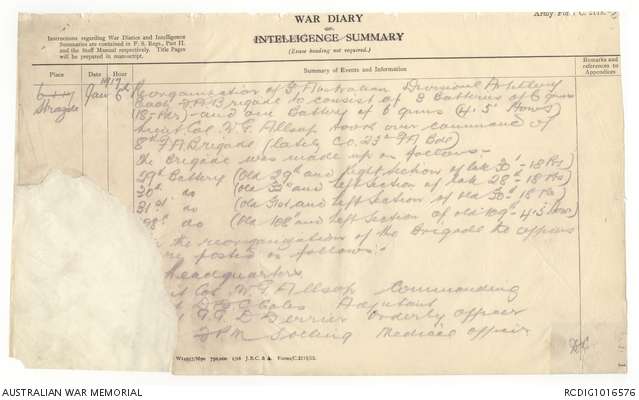 WAR DIARY
or
INTELLIGENCE SUMMARY
(Erase heading not required.)
Army Form C. 2118.
Instructions regarding War Diaries and Intelligence
Summaries are contained in F. S. Regs., Part II.
and the Staff Manual respectively. Title Pages
will be prepared in manuscript.
Place Date Hour Summary of Events and Information Remarks and references to Appendices
1917
Strazele Jan 6th Reorganisation of Australian Divisional Artillery
Each F.A. Brigade to consist of 3 Batteries of 6 guns
(18-Prs) and one Battery of 6 guns (4.5" Hows)
Lieut Col. W. G. Allsop took over command of
8th F.A. Brigade (lately Co. 23rd FA Bde)
The Brigade was made up as follows:-
29th Battery (Old 29th and right section of late 30th - 18 Prs)
30th do (old and left section of late 28th - 18 Prs)
31st do (Old 31st and left section of old 30th - 18 Prs)
108th do (Old 108th and left section of old 109th - 4.5 How)
the reorganisation of the Brigade the officers
posted as follows:-
Headquarters
Col. W. G. Allsop Commanding
Coles Adjutant
Orderly Officer
Medical Officer
750,000 J.B.C. & A. Forms/C.2118/12.
AUSTRALIAN WAR MEMORIAL
RCDIG1016576